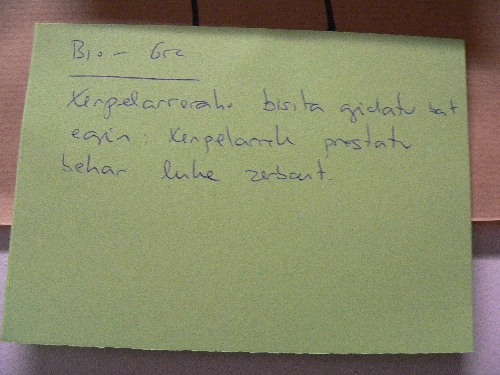 Bio - Gre
Xenpelarrerako bisita gidatu bat
egin: Xenpelarrek prestatu
behar luke zerbait.